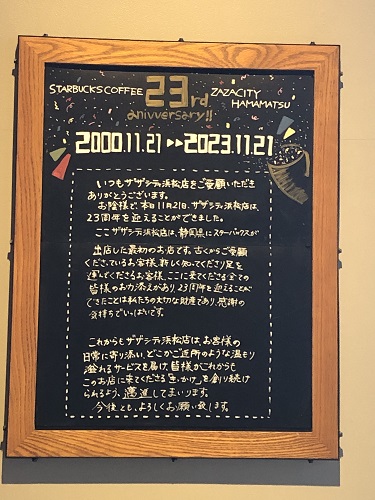 STARBUCKS COFFEE 23rd ZAZACITY
anivversary!! HAMAMATSU
2000.11.21 ▶▶ 2023.11.21
いつもザザシティ浜松店をご愛顧いただき
ありがとうございます。
お陰様で、本日11月21日、ザザシティ浜松店は、
23周年を迎えることができました。
ここザザシティ浜松店は、静岡県にスターバックスが
出店した最初のお店です。古くからご愛顧
くださっているお客様、新しく知ってくださり足を
運んでくださるお客様、ここに来てくださる全ての
皆様のお力添えがあり、23周年を迎えることが
できたことは私たちの大切な財産であり、感謝の
気持ちでいっぱいです。
これからもザザシティ浜松店は、お客様の
日常に寄り添い、どこかご近所のような温もり
溢れるサービスを届け、皆様がこれからも
このお店に来てくださる「きっかけ」を創り続け
られるよう、邁進してまいります。
今後とも、よろしくお願い致します。